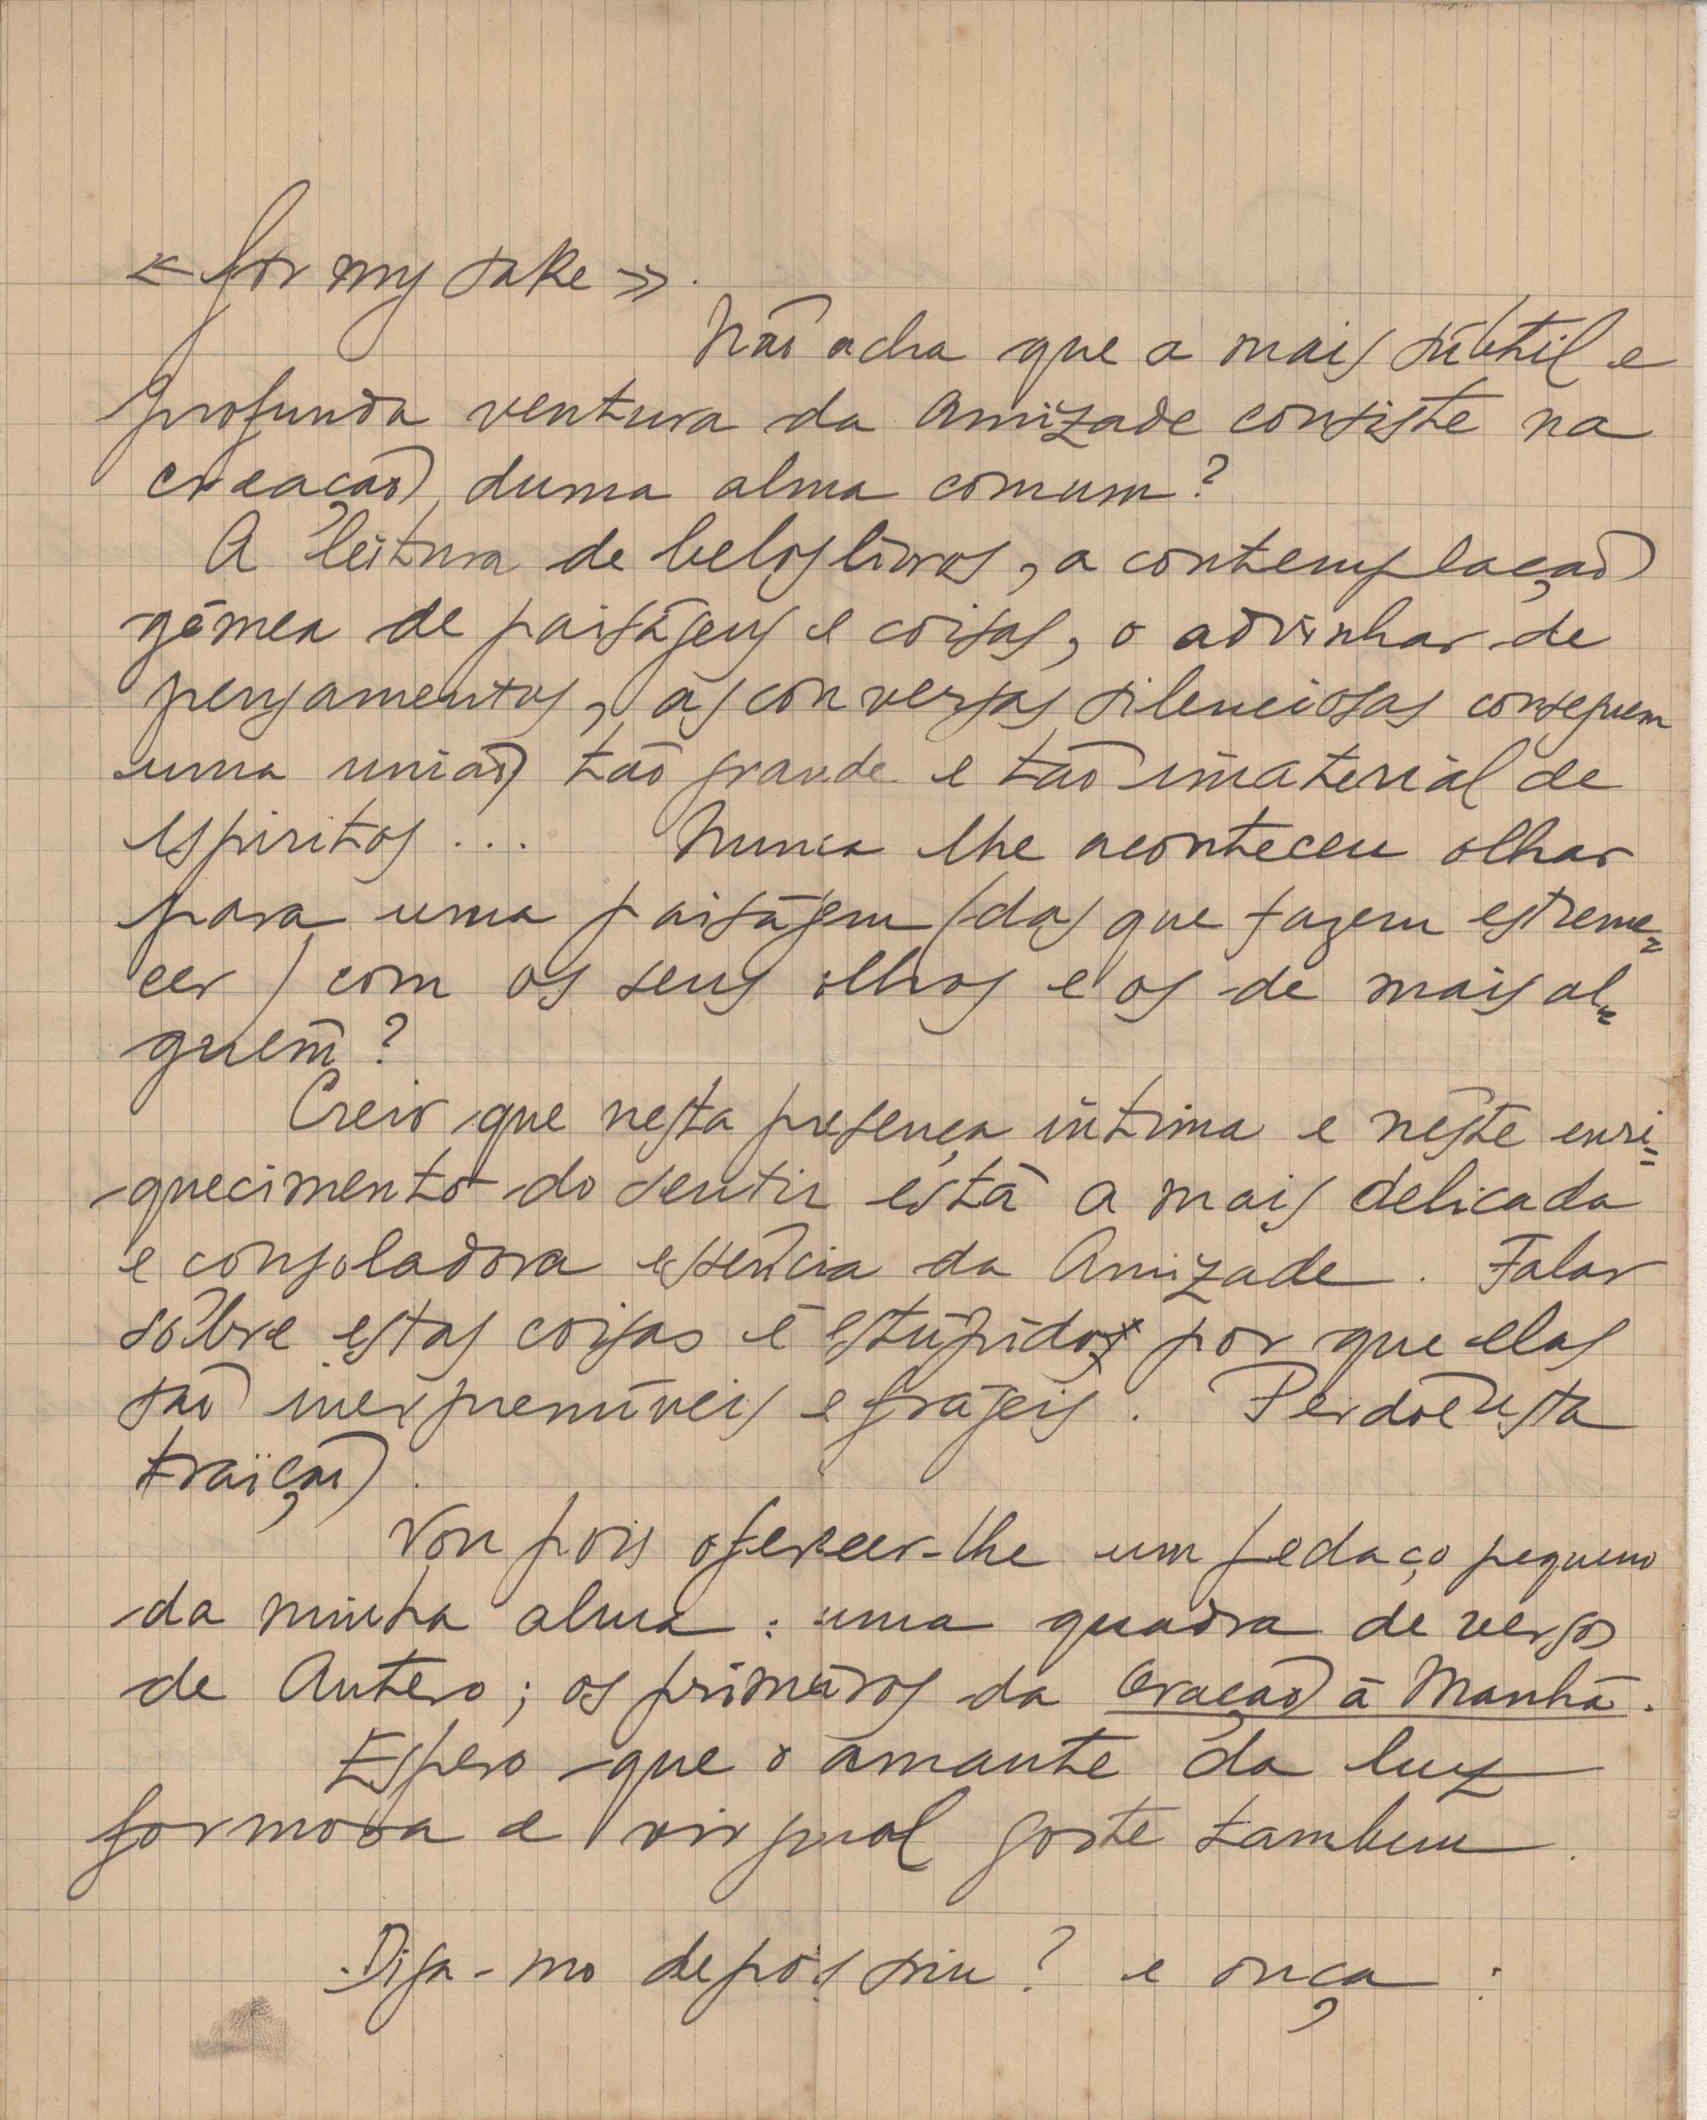 « for my sake ».
Não acha que a mais súbtil e
profunda ventura da Amizade consiste na
creação duma alma comum?
A leitura de belos livros, a contemplação
gémea de paisagens e coisas, o advinhar de
pensamentos, as conversas silenciosas conseguem
uma união tão grande e tão imaterial de
espiritos... Nunca lhe aconteceu olhar
para uma paisagem (das que fazem estreme=
cer) com os seus olhos e os de mais al=
guem?
Creio que nesta presença intima e nêste enri=
quecimento do sentir está a mais delicada
e consoladora essência da Amizade. Falar
sôbre estas coisas é estúpido por que elas
são inexpremíveis e frágeis. Perdôe esta
traïção.
Vou pois oferecer-lhe um pedaço pequeno
da minha alma: uma quadra de versos
de Antero; os primeiros da Oração à Manhã.
Espero que o amante da luz
formosa e virginal goste tambem.
Diga-mo depois sim? e ouça: